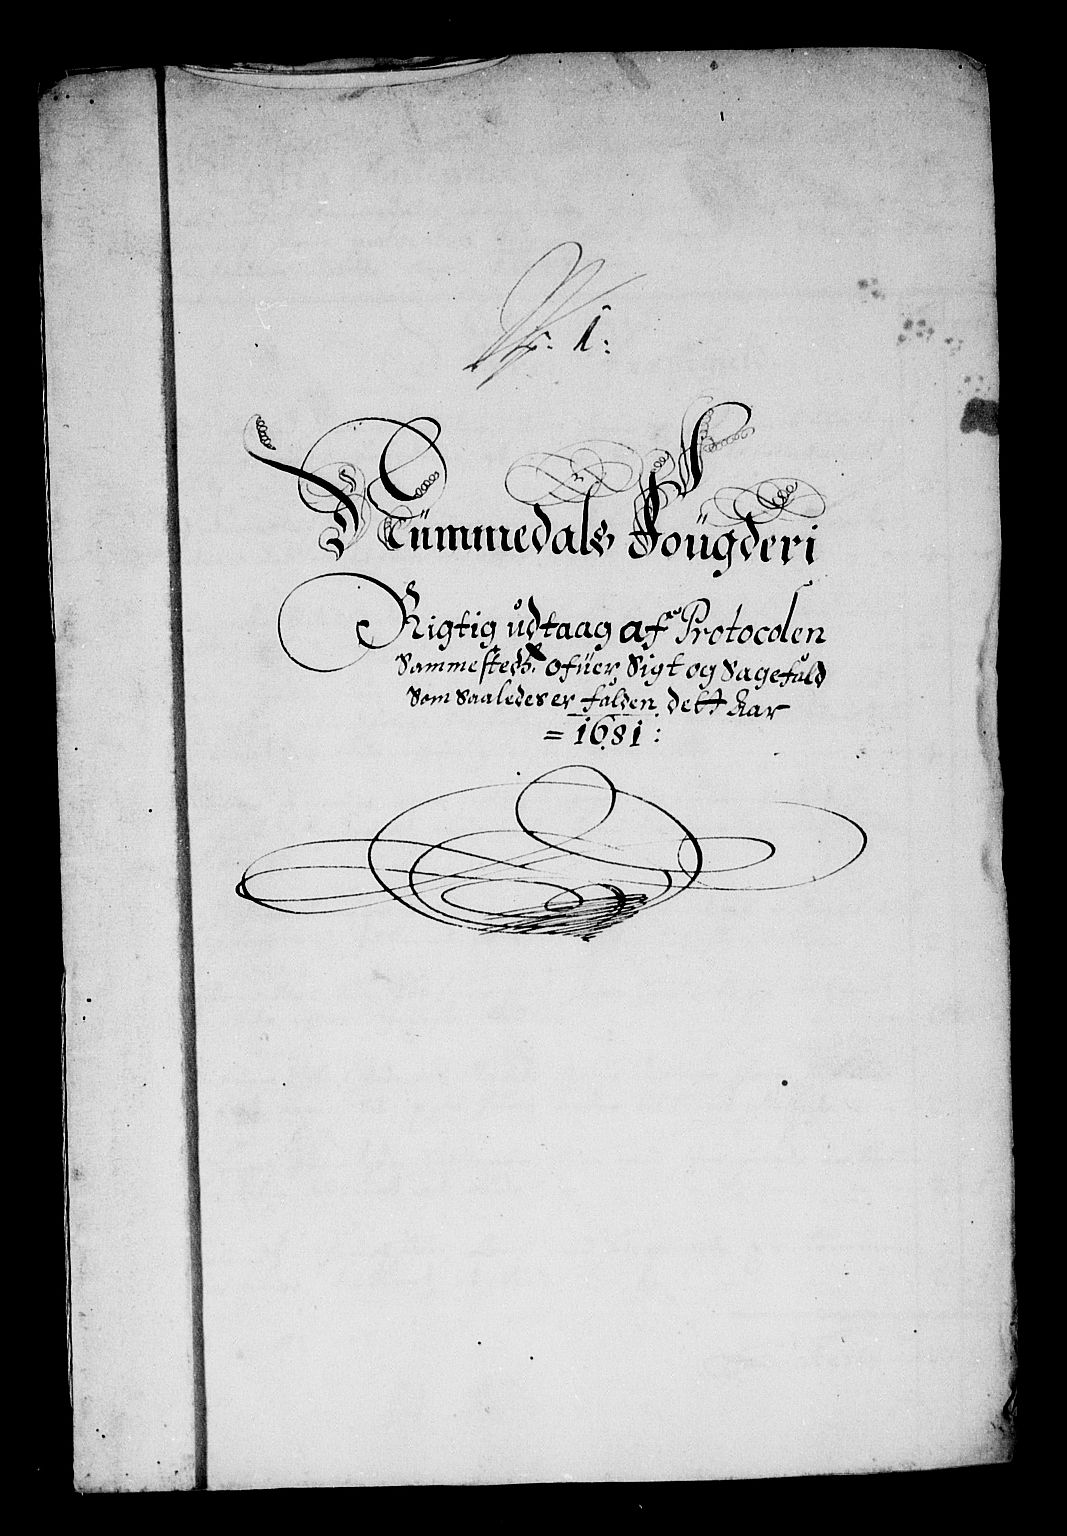 Nr: 1:
Nümmedals Fougderi
Rigtig udtaag af Protocolen
Sammesteds ofuer Sigt og Sagefald
Som Saaledes er falden dett Aar
= 1681 :